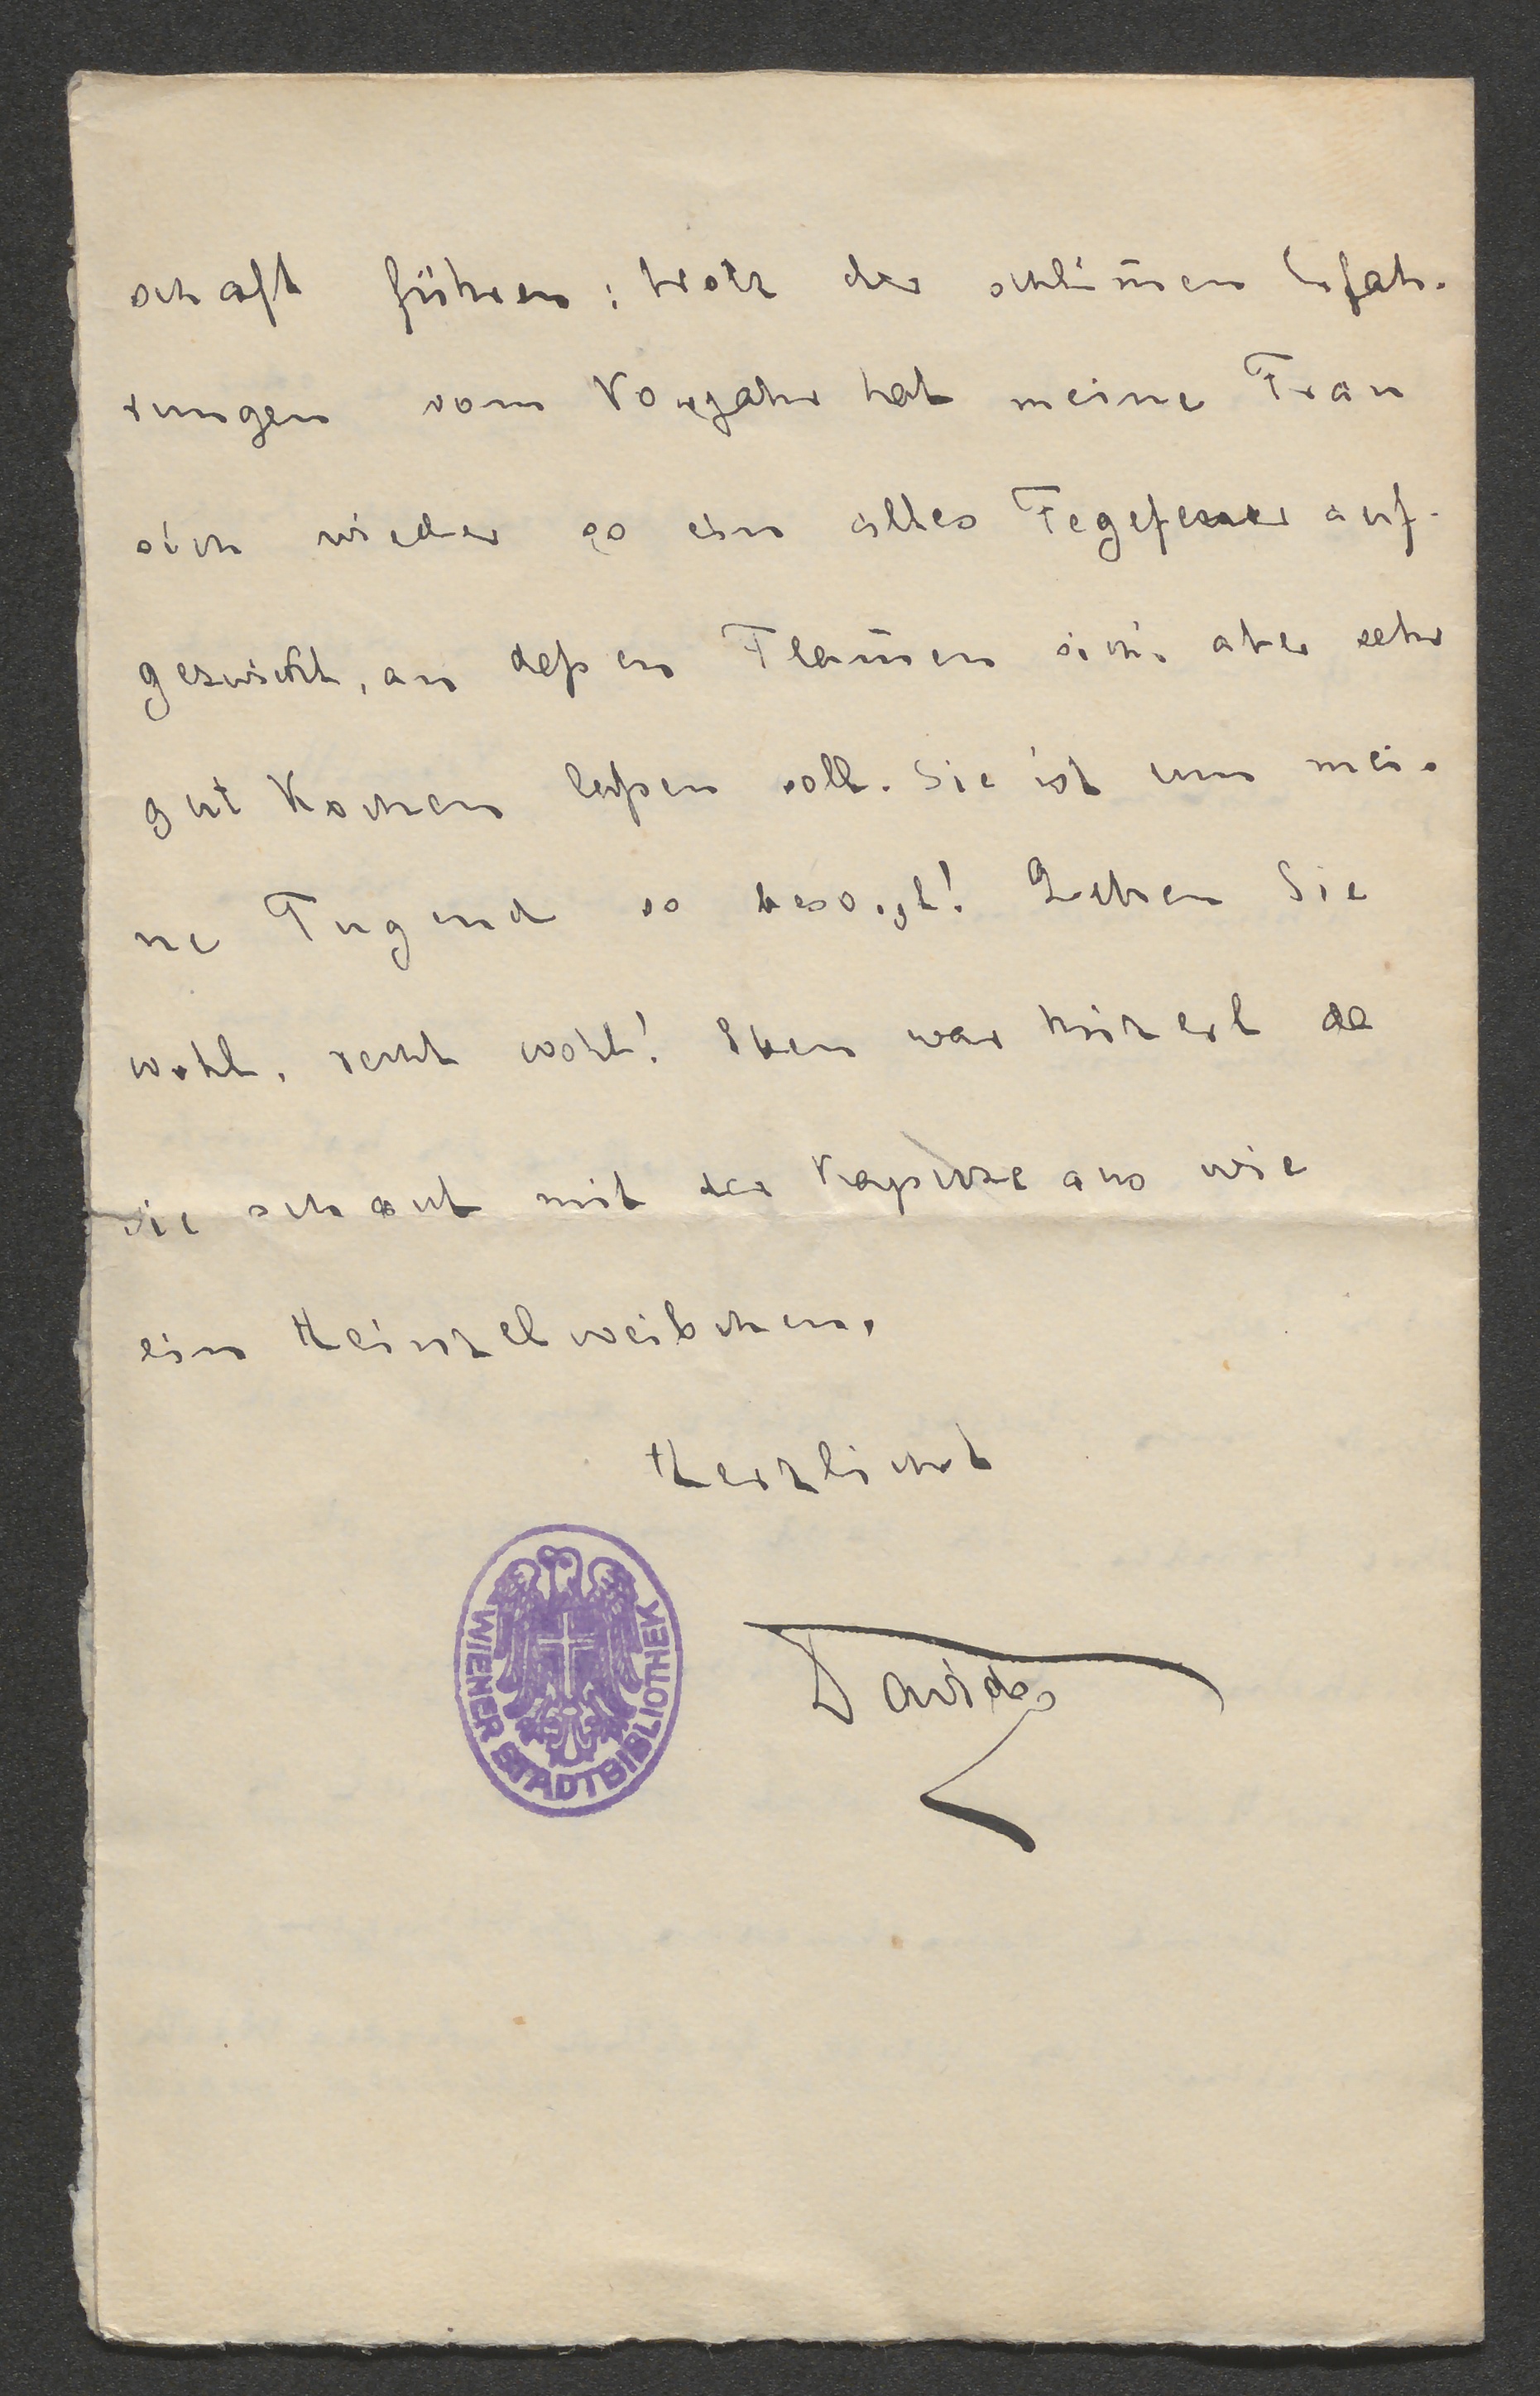 schaft führen; trotz der schlim̄en Erfah-
rungen vom Vorjahr hat meine Frau
sich wieder so ein altes Fegefeuer auf-
gezwickt, an deßen Flam̄en sich's aber sehr
gut Kochen laßen soll. Sie ist um mei-
ne Tugend so besorgt! Leben Sie
wohl, recht wohl! Eben war da
sie schaut mit der Kapuze aus wie
ein Heinzelweibchen.
Herzlichst
David
WIENER STADTBIBLIOTHEK